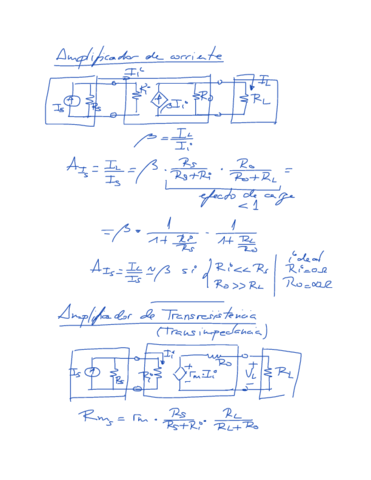 Amplificador de corriente
Ii
IL
Is
Rs
Ri
βIi
Ro
RL
β = IL / Ii
AIs = IL / Is = β · Rs / (Rs+Ri) · Ro / (Ro+RL) =
efecto de carga
< 1
= β · 1 / (1 + Ri/Rs) · 1 / (1 + RL/Ro)
AIs = IL / Is ≈ β si { Ri << Rs
Ro >> RL
ideal
Ri = 0Ω
Ro = ∞Ω
Amplificador de Transresistencia
(Transimpedancia)
Ii
Ro
Is
Rs
Ri
+
rm·Ii
-
+
VL
-
RL
Rms = rm · Rs / (Rs+Ri) · RL / (RL+Ro)